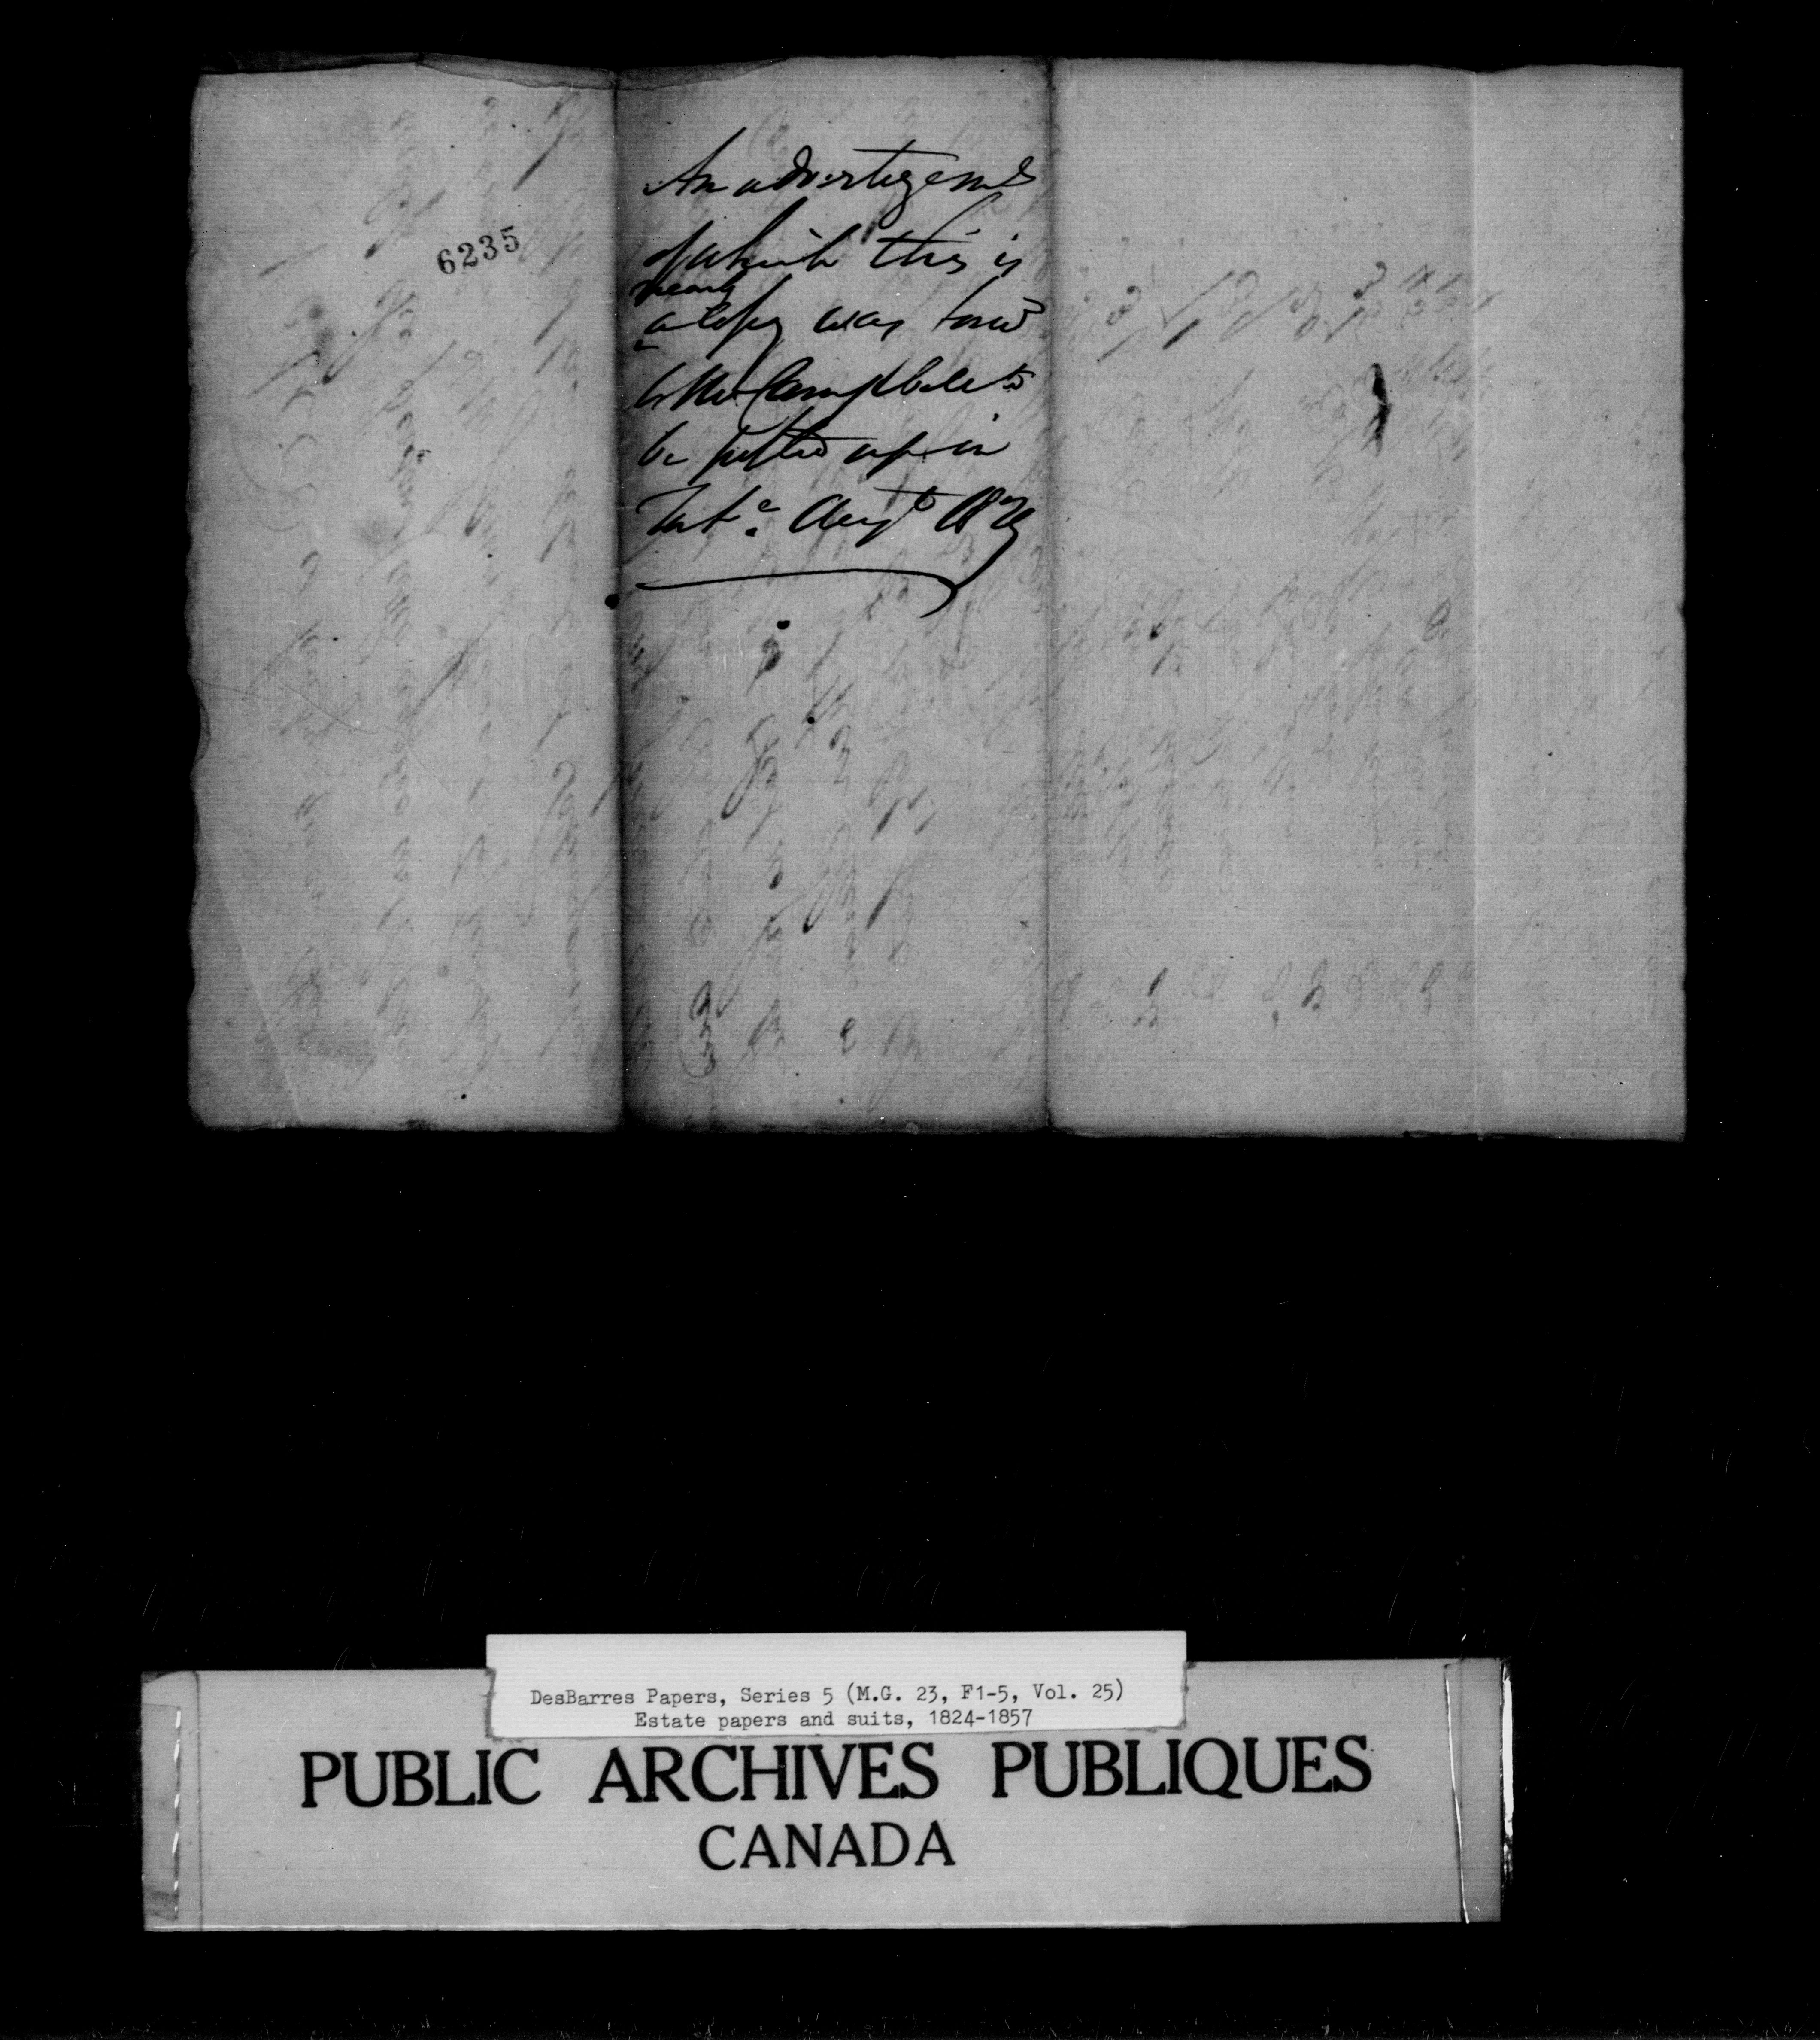 6235
An advertizemt
of which this is
nearly
a Copy was forwd
to Mr Campbell to
be posted up in
Tate. Augt 1829
DesBarres Papers, Series 5 (M.G. 23, F1-5, Vol. 25)
Estate papers and suits, 1824-1857
PUBLIC ARCHIVES PUBLIQUES
CANADA